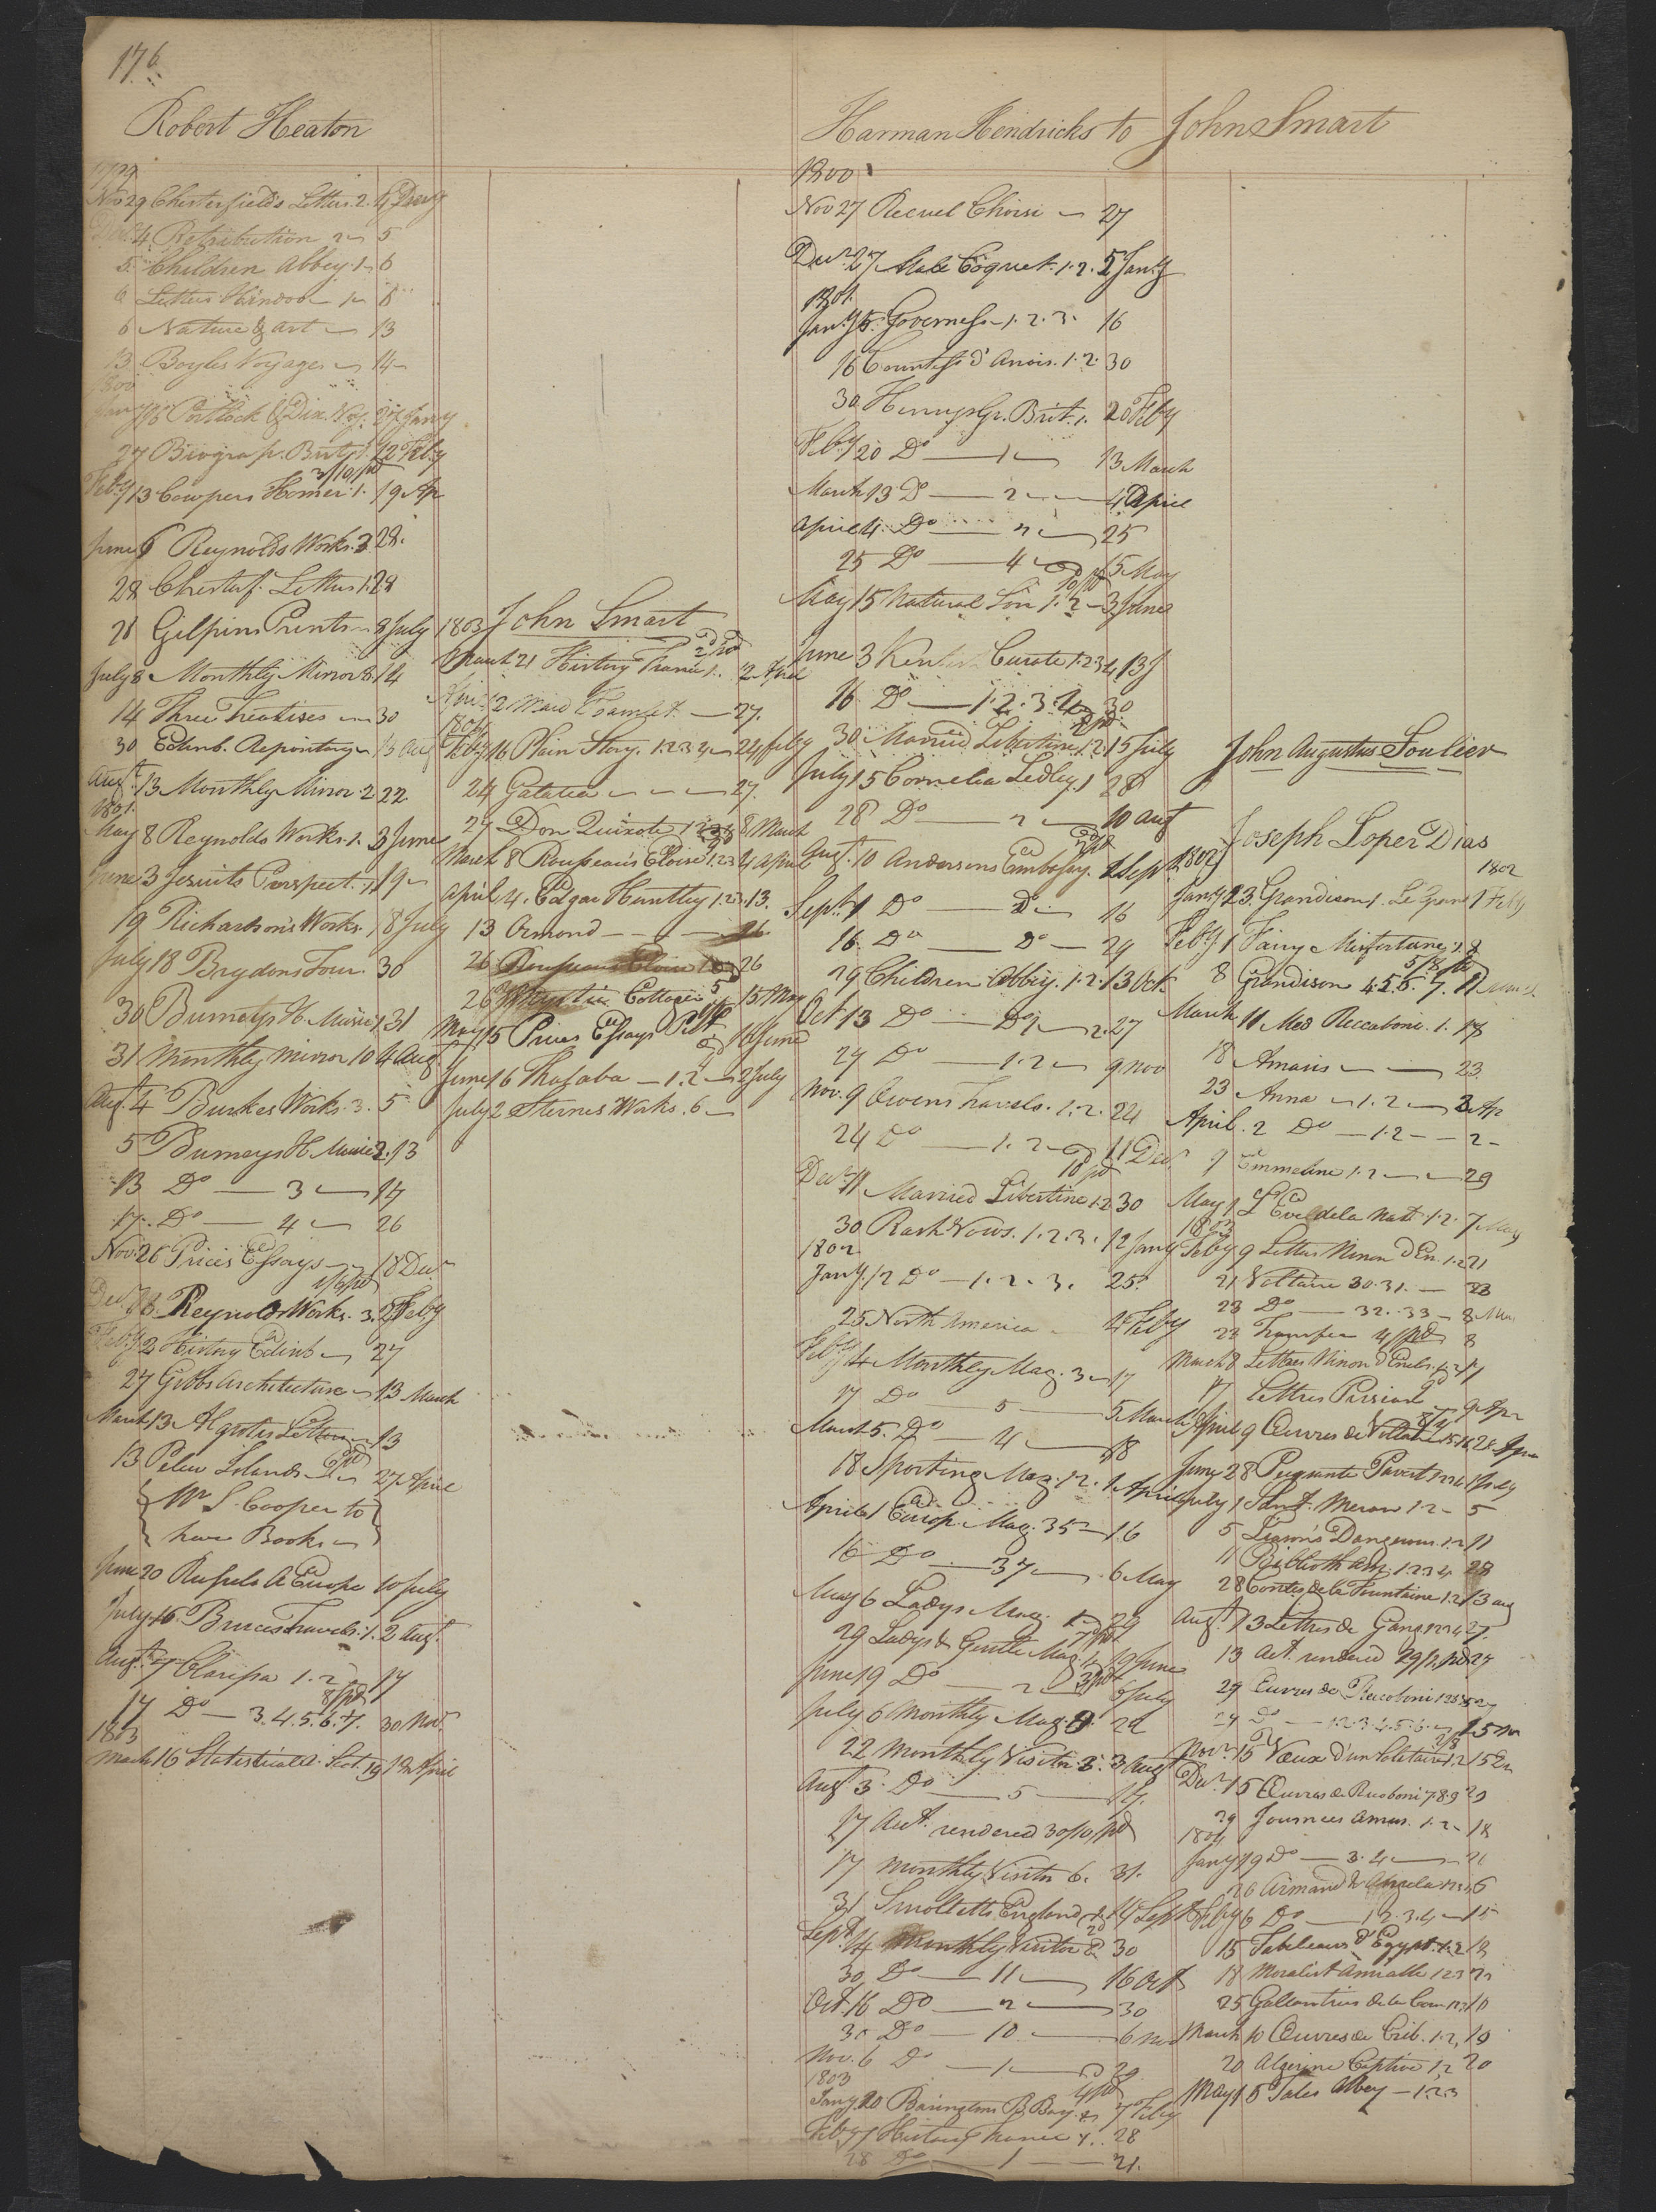 176
Robert Heaton
1799
Nov 29 Chesterfields Letters. 2. 4 Decr
Decr 4 Retribution 2 5
5 Children Abbey. 1 6
6 Letters Hindoo 1 6
6 Nature & Art 13
13 Boyles Voyages 14
1800
Jany 16 Portlock & Dix. Voy. 27 Jany
27 Biograp. Brit. 1. 12 Feby
3/10/pd
Feby 13 Cowpers Homer. 1. 19 Ap
June 6 Reynolds Works. 3 28.
28 Chesterf. Letters 1. 28
28 Gilpins Prints 8 July
July 8 Monthly Mirror 8. 14
14 Three Treatises 30
30 Edinb. Repository 13 Aug
Augt 13 Monthly Mirror 2 22
1801.
May 8 Reynolds Works. 1. 3 June
June 3 Jesuits Perspect. 1. 19
19 Richardsons Works. 18 July
July 18 Brydons Tour. 30
30 Burneys H. Music 1. 31
31 Monthly Mirror 10 4 Aug
Augt 4 Burkes Works. 3. 5
5 Burneys H. Music 2. 13
13 Do 3 17
17 Do 4 26
Nov 26 Prices Essays 18 Decr
1/6/pd
Decr 18 Reynolds Works. 3. 2 Feby
Feby 2 History Edinb 27
27 Gibbs Architecture 13 March
March 13 Algrotis Letters 13
13 Pelew Islands 27 April
{ Mr S. Cooper to }
{ have Books }
June 20 Russels A Europe 10 July
July 16 Bruces Travels. 1. 2 Augt
Augt 7 Clarissa 1. 2 17
8/pd
17 Do 3. 4. 5. 6. 7. 30 Nov
1803
March 16 Statistical A. Scot. 19 18 April
1803 John Smart
2/pd
March 21 History France 1. 12 April
April 12 Maid Hamlet 27.
1804
Feby 16 Plain Story. 1. 2 3 4 24 feby
24 Galatea 27.
27 Don Quixote 1 2 3 4 8 March
March 8 Rousseaus Eloise 1. 2 3 4 April
April 4. Edgar Huntley 1. 2. 3. 13.
13 Ormond 26
26 Rousseaus Eloise 26
26 Cottager 15 May
May 15 Prices Essays 16 June
June 16 Thalaba 1. 2 2 July
July 2 Sternes Works. 6
Harman Hendricks to John Smart
1800
Nov 27 Recuel Choisi 27
Decr 27 Male Coquet. 1. 2. 5 Jany
1801.
Jany 5. Governess 1. 2. 3. 16
16 Countess d'Anois. 1. 2. 30
30 Henrys Gr. Brit. 1. 20 Feby
Feby 20 Do 1 13 March
March 13 Do 2 4 April
April 4. Do 2 25
25 Do 4 15 May
10/pd
May 15 Natural Son 1. 2 3 June
June 3 Kentish Curate 1. 2 3 4. 13
16 Do 1. 2. 3. 4 30
30 Married Libertine 1. 2. 15 July
July 15 Cornelia Sedley. 1 28
28 Do 2 10 Aug
Augt. 10 Andersons Embassy. 1 Sept
Sept. 1 Do Do 16
16. Do Do 29
29 Children Abbey. 1. 2. 13 Oct
Oct 13 Do Do 27
27 Do 1. 2 9 Nov
Nov. 9 Owens Travels. 1. 2. 24
24 Do 1. 2 11 Decr
10/pd
Decr 11 Married Libertine 1. 2 30
30 Rash Vows. 1. 2. 3. 12 Jany
1802
Jany. 12 Do 1. 2. 3. 25.
25 North America 4 Feby
Feby 4 Monthly Mag. 3 17
17 Do 5 5 March
March 5. Do 4 18
18 Sporting Mag. 12. 1 April
April 1 Europ. Mag. 35 16
16 Do 37 6 May
May 6 Ladys Mag. 29
29 Ladys & Gentle Mag. 1. 19 June
June 19 Do 2 6 July
July 6 Monthly Mag. 9. 22
22 Monthly Visitor 3. 3 Augt
Augt 3. Do 5 17.
17 Act. rendered 30/10/pd
17 Monthly Visitor 6. 31.
31 Smolletts England 1. 14 Sept
Sept 14 Monthly Visitor 8 30
30 Do 11 16 Oct
Oct 16 Do 2 30
30 Do 10 6 Nov
Nov. 6 Do 1 20
1803
Jany 20 Barringtons B. Bay. 7 Feby
Feby 7 History France 28
28 Do 1 21.
John Augustus Soulier
Joseph Lopez Dias
1802
Feby. 1 Fairy Misfortune 8
8 Grandison 4. 5. 6. 7. 11 March
March 11 Mad Riccaboni. 1. 18
18 Amasis 23
23 Anna 1. 2 2 Ap
April. 2 Do 1. 2 2
9 Emmeline 1. 2 29
May 1 7 May
1803
Feby 9 Letters Ninon d'En. 1. 2 21
21 Voltaire 30. 31. 23
23 Do 32. 33 8 Mar
23 Transfer 4/pd 8
March 8 Lettres Ninon d'Encls. 1. 2 17
17 Lettres Persian 9 Apr
April 9 Œuvres de Voltaire 15. 16 28 June
June 28 1 July
July 1 1. 2 5
5 Liasons Dangerous. 1. 2 11
11 Biblioth 1. 2 3 4 28
28 Contes de la Fountaine 1. 2 13 aug
Augt 13 Lettres de Gang 1 2 3 4 27.
13 Act. rendered 29/2, pd 27
29 Euvres de Riccoboni
27 Do 1. 2. 3. 4. 5. 6. 15 Nov
Novr. 15 Vœux d'un Solitaire 1. 2 15 Decr
Decr. 15 Œuvres de Riccoboni 7. 8. 9 29
29 Journees Amus. 1. 2 18
1804
Jany 19 Do 3. 4 26
26 Armand & Angela 1 2 3 4 6
Feby 6 Do 1 2. 3. 4 15
15 Tableaux d'Egypt. 1. 2 18
18 Moralist Amiable 1 2 3 25
25 Gallantries de la Cour 1 2 3 10
March 10 Œuvres de Crib. 1. 2, 19
20 Algerine Captive 1, 2 20
May 18 Tales Abbey 1. 2 3